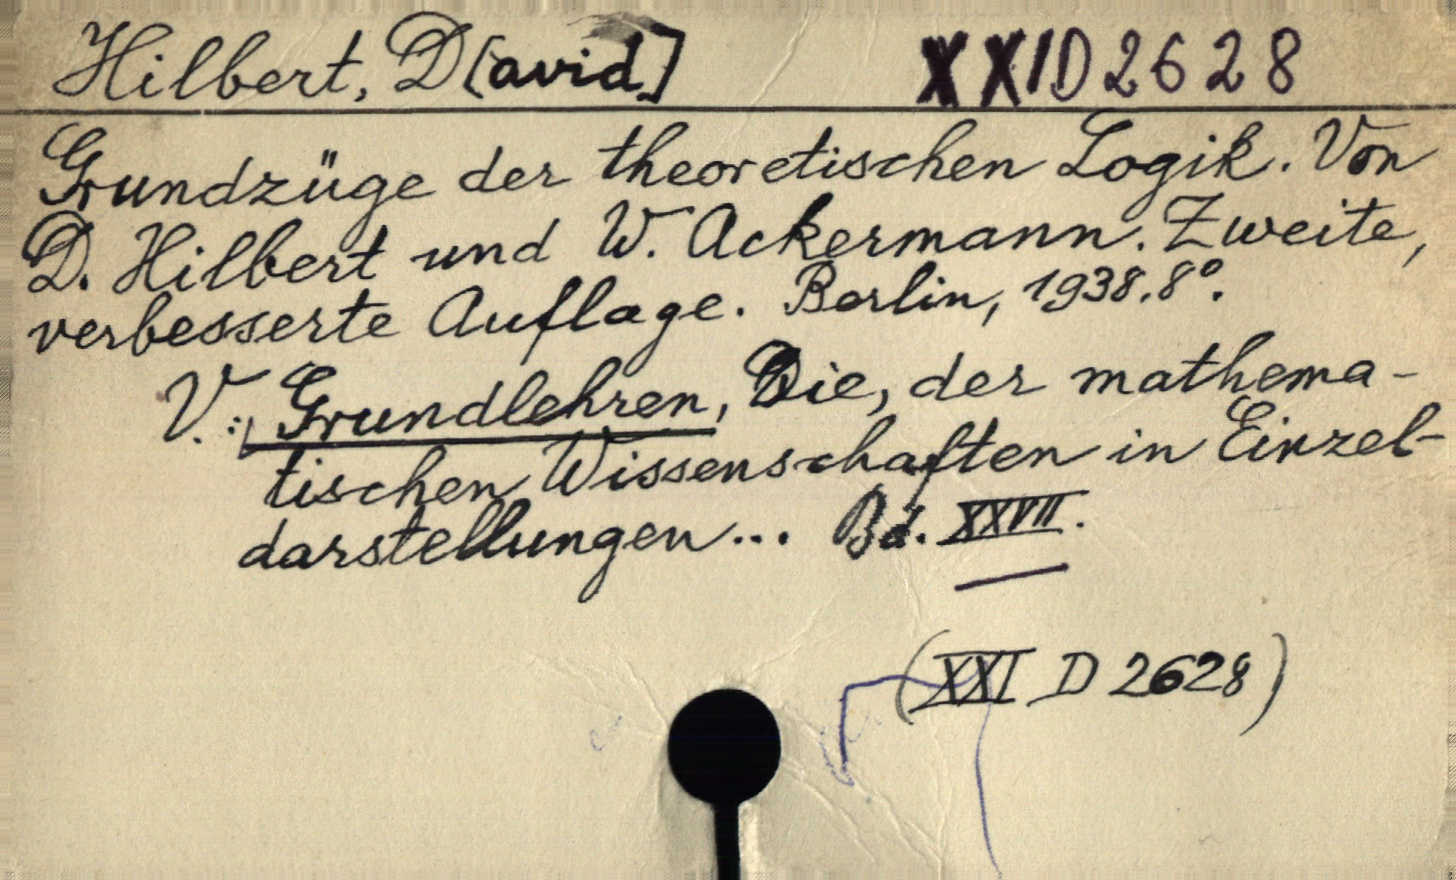 Hilbert, D[avid] XXID2628
Grundzüge der theoretischen Logik. Von
D. Hilbert und W. Ackermann. Zweite,
verbesserte Auflage. Berlin, 1938. 8°.
V.: Grundlehren, Die, der mathema-
tischen Wissenschaften in Einzel-
darstellungen... Bd. XXVII.
(XXI D 2628)